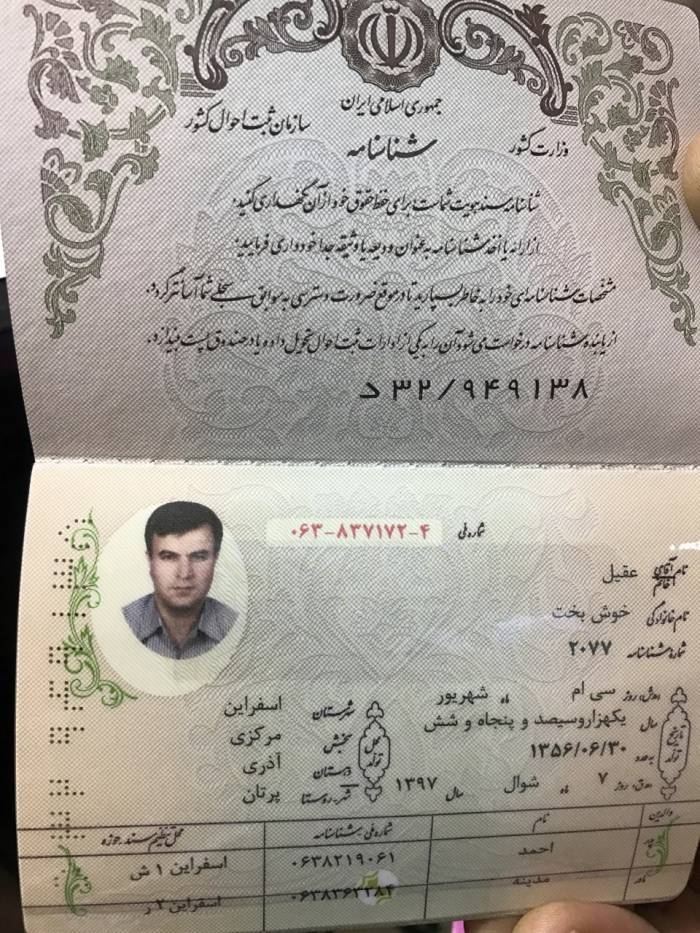 جمهوری اسلامی ایران
وزارت کشور
سازمان ثبت احوال کشور
شناسنامه
شناسنامه سند هویت شماست برای حفظ حقوق خود از آن نگهداری کنید.
از ارائه یا اخذ شناسنامه به عنوان ودیعه یا وثیقه جدا خودداری فرمایید.
مشخصات شناسنامه‌ای خود را به خاطر بسپارید تا در موقع ضرورت دسترسی به سوابق سجلی شما آسانتر گردد.
از یابنده شناسنامه درخواست می‌شود آن را به یکی از ادارات ثبت احوال تحویل داده یا در صندوق پست بیندازد.
د ۳۲/۹۴۹۱۳۸
شماره ملی ۰۶۳-۸۳۷۱۷۲-۴
نام آقای خانم عقیل
نام خانوادگی خوش بخت
شماره شناسنامه ۲۰۷۷
تاریخ تولد
روز سی ام ماه شهریور
سال یکهزاروسیصد و پنجاه و شش
به عدد ۱۳۵۶/۰۶/۳۰
روز ۷ ماه شوال سال ۱۳۹۷
محل تولد
شهرستان اسفراین
بخش مرکزی
دهستان آذری
شهر-روستا پرتان
والدین نام شماره ملی-شناسنامه محل تنظیم سند حوزه
پدر احمد ۰۶۳۸۲۱۹۰۶۱ اسفراین ۱ ش
مادر مدینه ۰۶۳۸۳۶۳۲۸۴ اسفراین ۲ ر